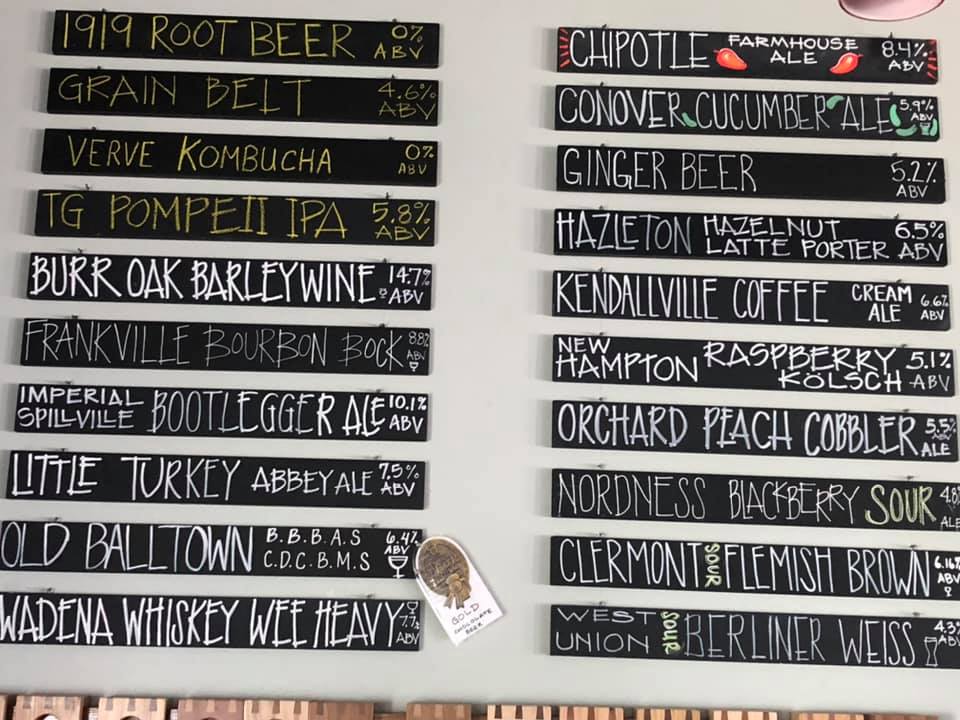 1919 ROOT BEER 0% ABV
GRAIN BELT 4.6% ABV
VERVE KOMBUCHA 0% ABV
TG POMPEII IPA 5.8% ABV
BURR OAK BARLEYWINE 14.7% ABV
FRANKVILLE BOURBON BOCK 8.8% ABV
IMPERIAL SPILLVILLE BOOTLEGGER ALE 10.1% ABV
LITTLE TURKEY ABBEY ALE 7.5% ABV
OLD BALLTOWN B.B.B.A.S C.D.C.B.M.S 6.4% ABV
WADENA WHISKEY WEE HEAVY 7.7% ABV
GOLD
CHOCOLATE
BEER
CHIPOTLE FARMHOUSE ALE 8.4% ABV
CONOVER CUCUMBER ALE 5.9% ABV
GINGER BEER 5.2% ABV
HAZLETON HAZELNUT LATTE PORTER 6.5% ABV
KENDALLVILLE COFFEE CREAM ALE 6.6% ABV
NEW HAMPTON RASPBERRY KÖLSCH 5.1% ABV
ORCHARD PEACH COBBLER 5.5% ABV ALE
NORDNESS BLACKBERRY SOUR 4.8% ALE
CLERMONT SOUR FLEMISH BROWN 6.16% ABV
WEST UNION SOUR BERLINER WEISS 4.3% ABV